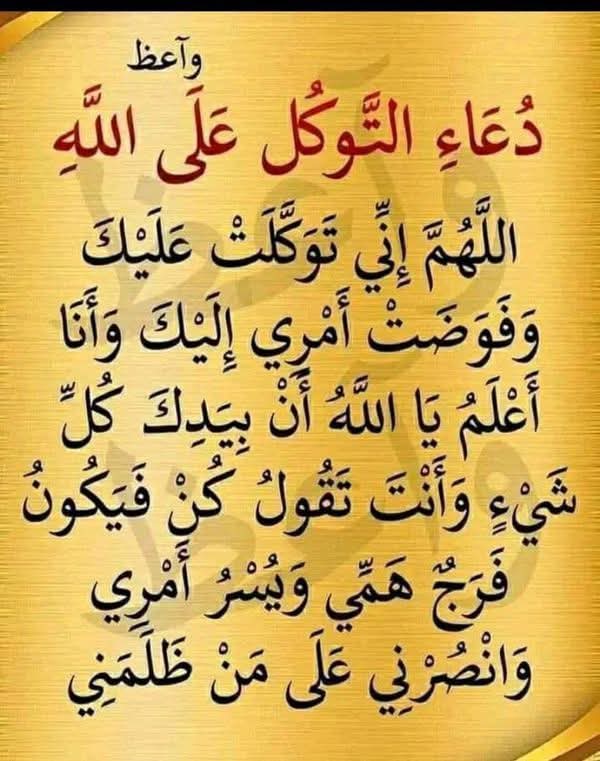 وآعظ
دُعَاءِ التَّوكُل عَلَى اللَّهِ
اللَّهُمَّ إِنِّي تَوَكَّلَتْ عَلَيْكَ
وَفَوَضَتْ أَمْرِي إِلَيْكَ وَأَنَا
أَعْلَمُ يَا اللَّهُ أَنْ بِيَدِكَ كُلِّ
شَيْءٍ وَأَنْتَ تَقُولُ كُنْ فَيَكُونُ
فَرَجُ هَمِّي وَيُسْرُ أَمْرِي
وَانْصُرْنِي عَلَى مَنْ ظَلَمَنِي